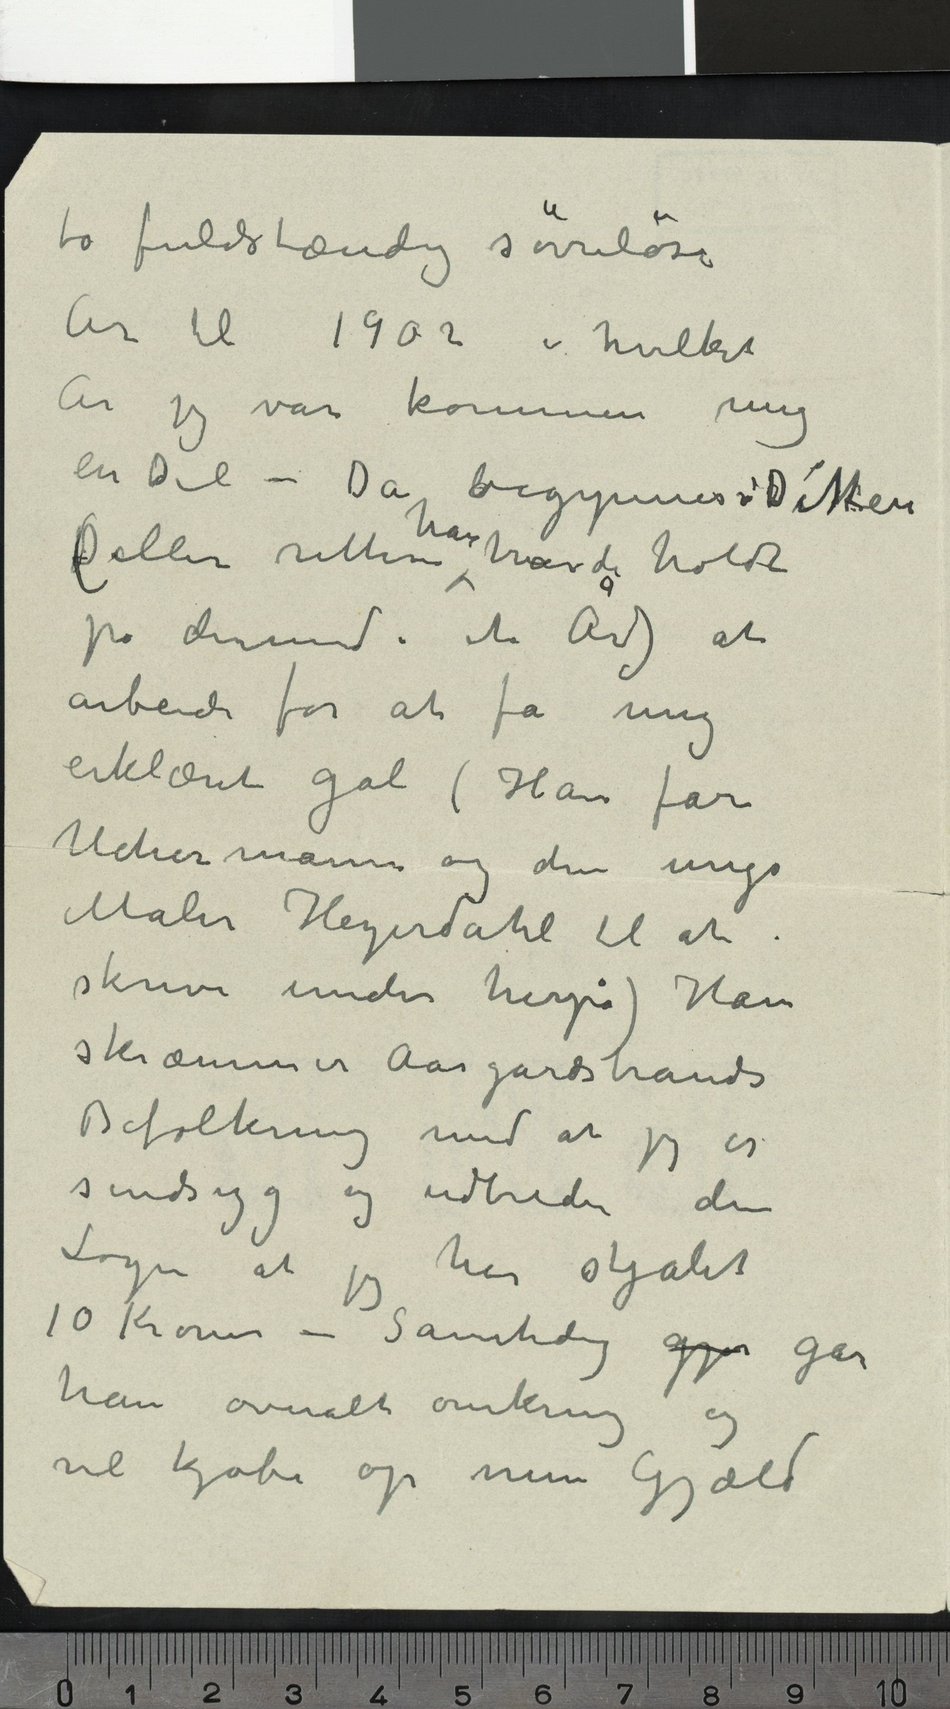 to fuldstændig søvnløse
År til 1902 i hvilket
År jeg var kommen mig
en Del – Da begynner Ditten
(eller rettere han havde holdt
på dermed i År) at
arbeide for at få mig
erklæret gal (Han får
Uchermann og den unge
Maler Heyerdahl til at
skrive under herpå) Han
skræmmer Aasgårdstrands
Befolkning med at jeg er
sindsyg og udbreder den
Løgn at jeg har stjålet
10 Kroner – Samtidig gjør går
han overalt omkring og
vil kjøbe op min Gjæld
0 1 2 3 4 5 6 7 8 9 10